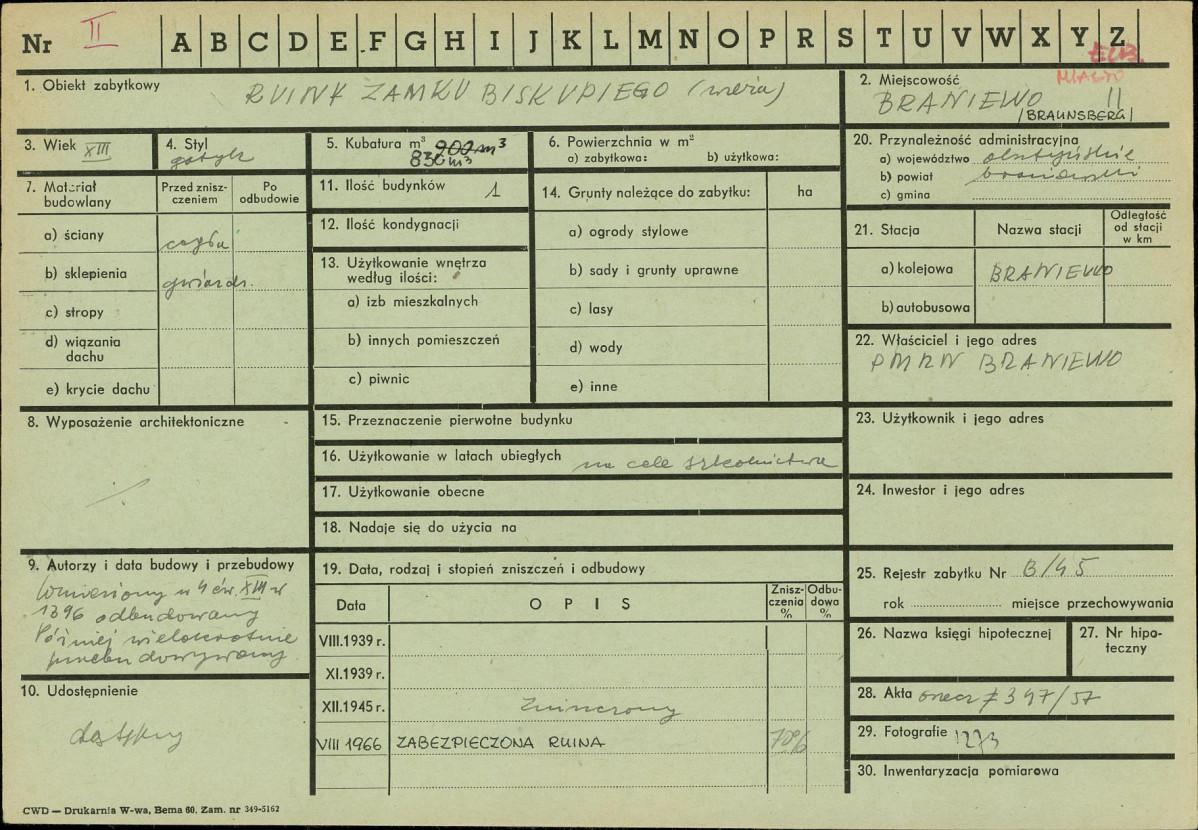 Nr II A B C D E F G H I J K L M N O P R S T U V W X Y Z
ELB.
MIASTO
1. Obiekt zabytkowy RUINY ZAMKU BISKUPIEGO (wieża)
2. Miejscowość
BRANIEWO II
/BRAUNSBERG/
3. Wiek XIII
4. Styl
gotyk
5. Kubatura m³ 900 m³
830 m³
6. Powierzchnia w m²
a) zabytkowa: b) użytkowa:
20. Przynależność administracyjna
a) województwo olsztyńskie
b) powiat braniewski
c) gmina
7. Materiał budowlany
Przed zniszczeniem
Po odbudowie
a) ściany cegła
b) sklepienia gwiaźdz.
c) stropy
d) wiązania dachu
e) krycie dachu
11. Ilość budynków 1
12. Ilość kondygnacji
13. Użytkowanie wnętrza
według ilości:
a) izb mieszkalnych
b) innych pomieszczeń
c) piwnic
14. Grunty należące do zabytku: ha
a) ogrody stylowe
b) sady i grunty uprawne
c) lasy
d) wody
e) inne
21. Stacja
Nazwa stacji
Odległość
od stacji
w km
a) kolejowa BRANIEWO
b) autobusowa
22. Właściciel i jego adres
PMRN BRANIEWO
8. Wyposażenie architektoniczne
15. Przeznaczenie pierwotne budynku
16. Użytkowanie w latach ubiegłych na cele szkolnictwa
17. Użytkowanie obecne
18. Nadaje się do użycia na
23. Użytkownik i jego adres
24. Inwestor i jego adres
9. Autorzy i data budowy i przebudowy
Wzniesiony w 4 ćw. XIII w
1396 odbudowany
Później wielokrotnie
przebudowywany.
10. Udostępnienie
dostępny
19. Data, rodzaj i stopień zniszczeń i odbudowy
Data
OPIS
Zniszczenia
%
Odbudowa
%
VIII.1939 r.
XI.1939 r.
XII.1945 r. Zniszczony
VIII 1966 ZABEZPIECZONA RUINA 70%
25. Rejestr zabytku Nr B/45
rok miejsce przechowywania
26. Nazwa księgi hipotecznej
27. Nr hipoteczny
28. Akta 347/57
29. Fotografie 1273
30. Inwentaryzacja pomiarowa
CWD — Drukarnia W-wa, Bema 60. Zam. nr 349-5162